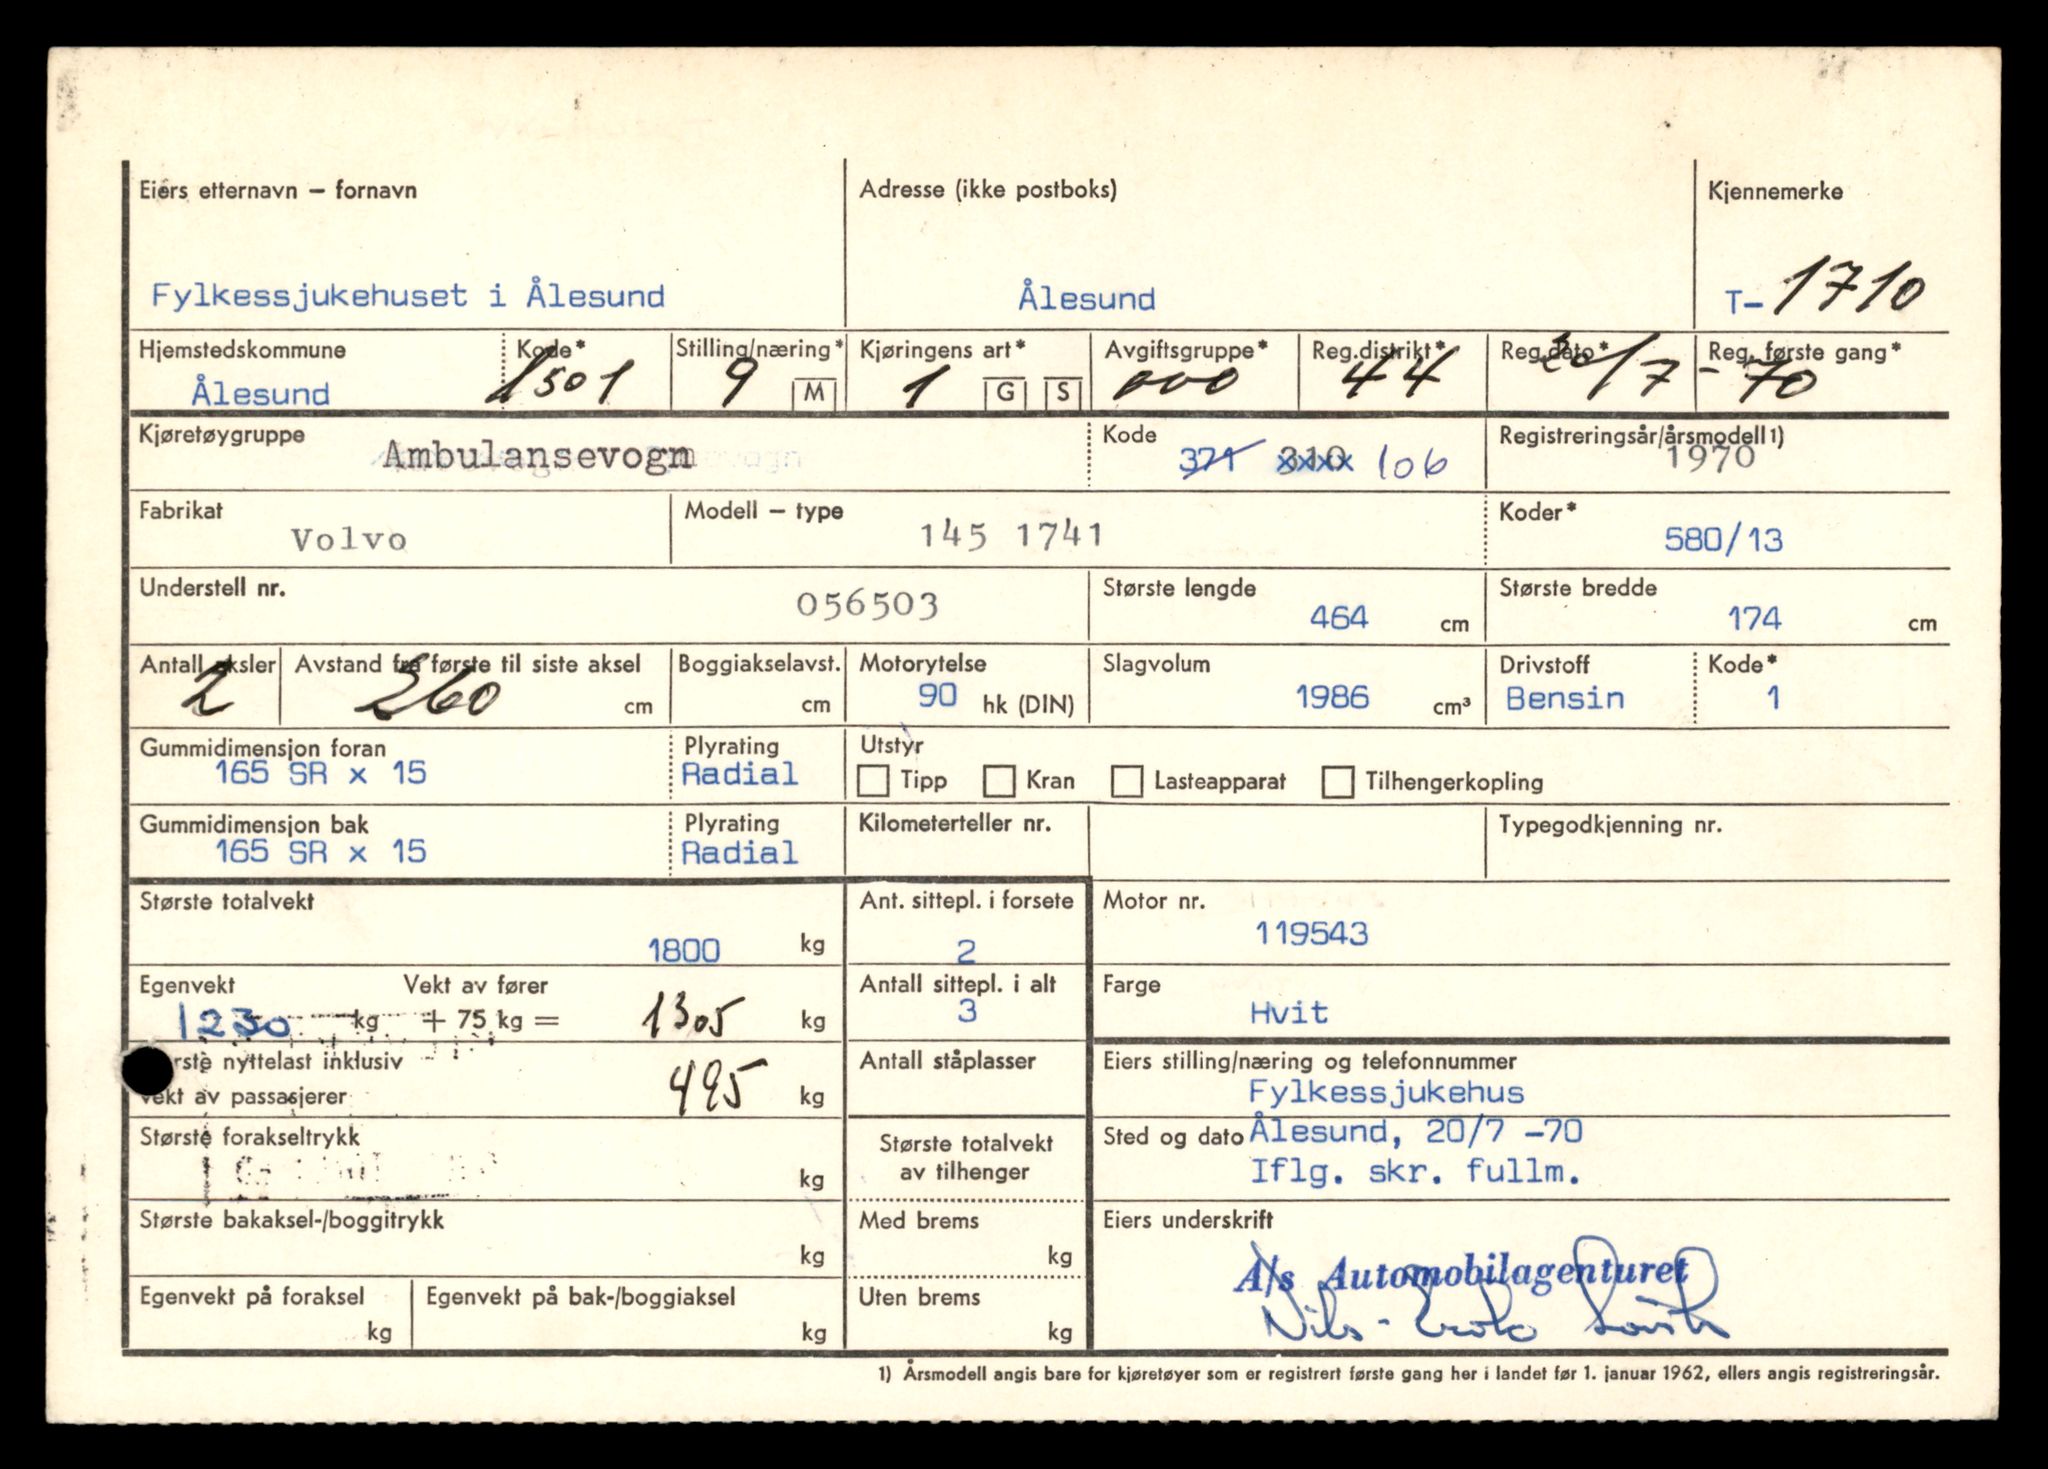 Eiers etternavn – fornavn Adresse (ikke postboks) Kjennemerke
Fylkessjukehuset i Ålesund Ålesund T- 1710
Hjemstedskommune Kode* Stilling/næring* Kjøringens art* Avgiftsgruppe* Reg.distrikt* Reg.dato* Reg. første gang*
Ålesund 1501 9 M 1 G S 000 44 20/7 - 70
Kjøretøygruppe Ambulansevogn Kode 371 310 106 Registreringsår/årsmodell 1)
1970
Fabrikat Modell – type Koder*
Volvo 145 1741 580/13
Understell nr. Største lengde Største bredde
056503 464 cm 174 cm
Antall aksler Avstand fra første til siste aksel Boggiakselavst. Motorytelse Slagvolum Drivstoff Kode*
2 260 cm cm 90 hk (DIN) 1986 cm³ Bensin 1
Gummidimensjon foran Plyrating Utstyr
165 SR x 15 Radial Tipp Kran Lasteapparat Tilhengerkopling
Gummidimensjon bak Plyrating Kilometerteller nr. Typegodkjenning nr.
165 SR x 15 Radial
Største totalvekt Ant. sittepl. i forsete Motor nr.
1800 kg 2 119543
Egenvekt Vekt av fører Antall sittepl. i alt Farge
1230 kg + 75 kg = 1305 kg 3 Hvit
nyttelast inklusiv Antall ståplasser Eiers stilling/næring og telefonnummer
vekt av passasjerer 495 kg Fylkessjukehus
Største forakseltrykk Største totalvekt Sted og dato Ålesund, 20/7 -70
kg av tilhenger Iflg. skr. fullm.
Største bakaksel-/boggitrykk Med brems Eiers underskrift
kg kg A/s Automobilagenturet
Egenvekt på foraksel Egenvekt på bak-/boggiaksel Uten brems Nils-
kg kg kg
1) Årsmodell angis bare for kjøretøyer som er registrert første gang her i landet før 1. januar 1962, ellers angis registreringsår.